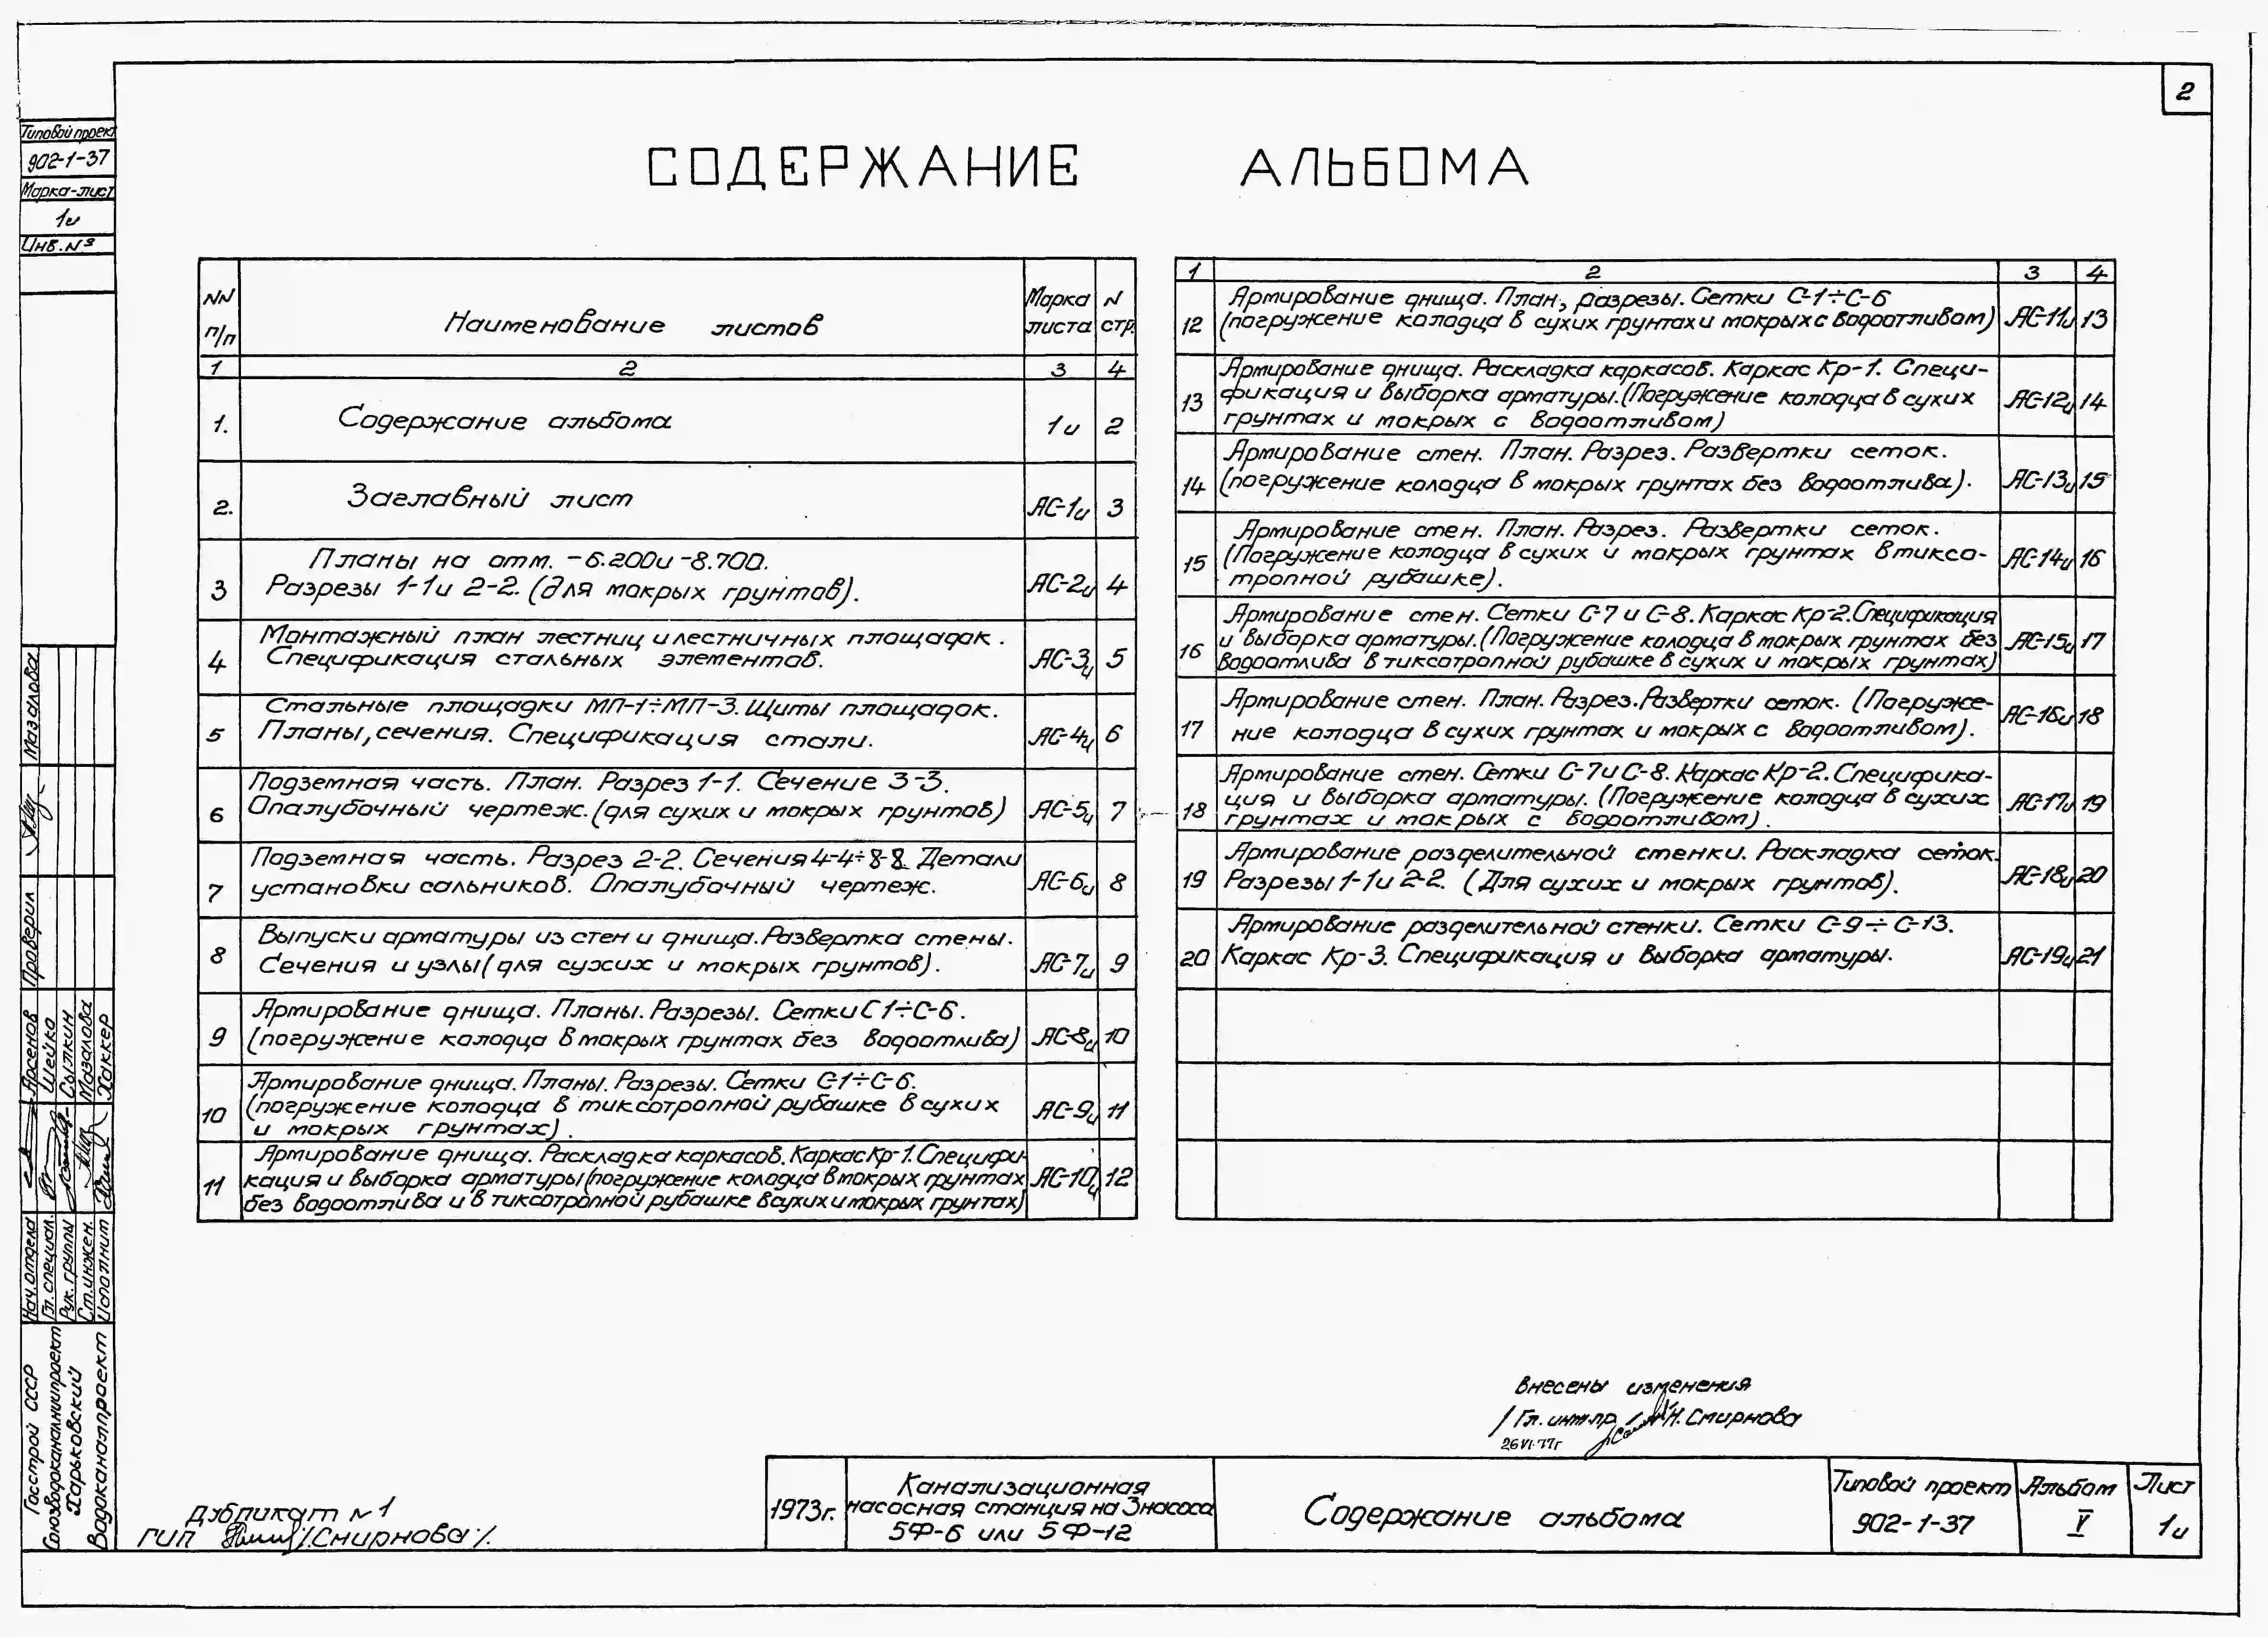 2
Типовой проект
902-1-37
Марка-лист
1и
Инв. №
СОДЕРЖАНИЕ АЛЬБОМА
NN п/п
Наименование листов
Марка листа
N стр.
1 2 3 4
1. Содержание альбома 1и 2
2. Заглавный лист АС-1и 3
Планы на отм. -6.200 и -8.700.
3 Разрезы 1-1 и 2-2. (для мокрых грунтов). АС-2и 4
Монтажный план лестниц и лестничных площадок.
4 Спецификация стальных элементов. АС-3и 5
Стальные площадки МП-1÷МП-3. Щиты площадок.
5 Планы, сечения. Спецификация стали. АС-4и 6
Подземная часть. План. Разрез 1-1. Сечение 3-3.
6 Опалубочный чертеж. (для сухих и мокрых грунтов) АС-5и 7
Подземная часть. Разрез 2-2. Сечения 4-4÷8-8. Детали
7 установки сальников. Опалубочный чертеж. АС-6и 8
Выпуски арматуры из стен и днища. Развертка стены.
8 Сечения и узлы (для сухих и мокрых грунтов). АС-7и 9
Армирование днища. Планы. Разрезы. Сетки С1÷С-6.
9 (погружение колодца в мокрых грунтах без водоотлива) АС-8и 10
Армирование днища. Планы. Разрезы. Сетки С-1÷С-6.
10 (погружение колодца в тиксотропной рубашке в сухих АС-9и 11
и мокрых грунтах).
Армирование днища. Раскладка каркасов. Каркас Кр-1. Специфи-
11 кация и выборка арматуры (погружение колодца в мокрых грунтах АС-10и 12
без водоотлива и в тиксотропной рубашке в сухих и мокрых грунтах)
1 2 3 4
Армирование днища. План, разрезы. Сетки С-1÷С-6
12 (погружение колодца в сухих грунтах и мокрых с водоотливом) АС-11и 13
Армирование днища. Раскладка каркасов. Каркас Кр-1. Специ-
13 фикация и выборка арматуры. (Погружение колодца в сухих АС-12и 14
грунтах и мокрых с водоотливом)
Армирование стен. План. Разрез. Развертки сеток.
14 (погружение колодца в мокрых грунтах без водоотлива). АС-13и 15
Армирование стен. План. Разрез. Развертки сеток.
15 (Погружение колодца в сухих и мокрых грунтах в тиксо- АС-14и 16
тропной рубашке).
Армирование стен. Сетки С-7 и С-8. Каркас Кр-2. Спецификация
16 и выборка арматуры. (Погружение колодца в мокрых грунтах без АС-15и 17
водоотлива в тиксотропной рубашке в сухих и мокрых грунтах)
Армирование стен. План. Разрез. Развертки сеток. (Погруже-
17 ние колодца в сухих грунтах и мокрых с водоотливом). АС-16и 18
Армирование стен. Сетки С-7 и С-8. Каркас Кр-2. Специфика-
18 ция и выборка арматуры. (Погружение колодца в сухих АС-17и 19
грунтах и мокрых с водоотливом).
Армирование разделительной стенки. Раскладка сеток.
19 Разрезы 1-1 и 2-2. (Для сухих и мокрых грунтов). АС-18и 20
Армирование разделительной стенки. Сетки С-9÷С-13.
20 Каркас Кр-3. Спецификация и выборка арматуры. АС-19и 21
Проверил Мазалова
Нач. отдела Арсенов
Гл. специал. Шейко
Рук. группы Сылкин
Ст. инжен. Мазалова
Исполнит Хаккер
Госстрой СССР
Союзводоканалниипроект
Харьковский
Водоканалпроект
Внесены изменения
/Гл. инж. пр. Н. Смирнова
26 VI-77г
Дубликат N 1
ГИП /Смирнова/.
1973г.
Канализационная
насосная станция на 3 насоса
5Ф-6 или 5Ф-12
Содержание альбома
Типовой проект
902-1-37
Альбом
V
Лист
1и